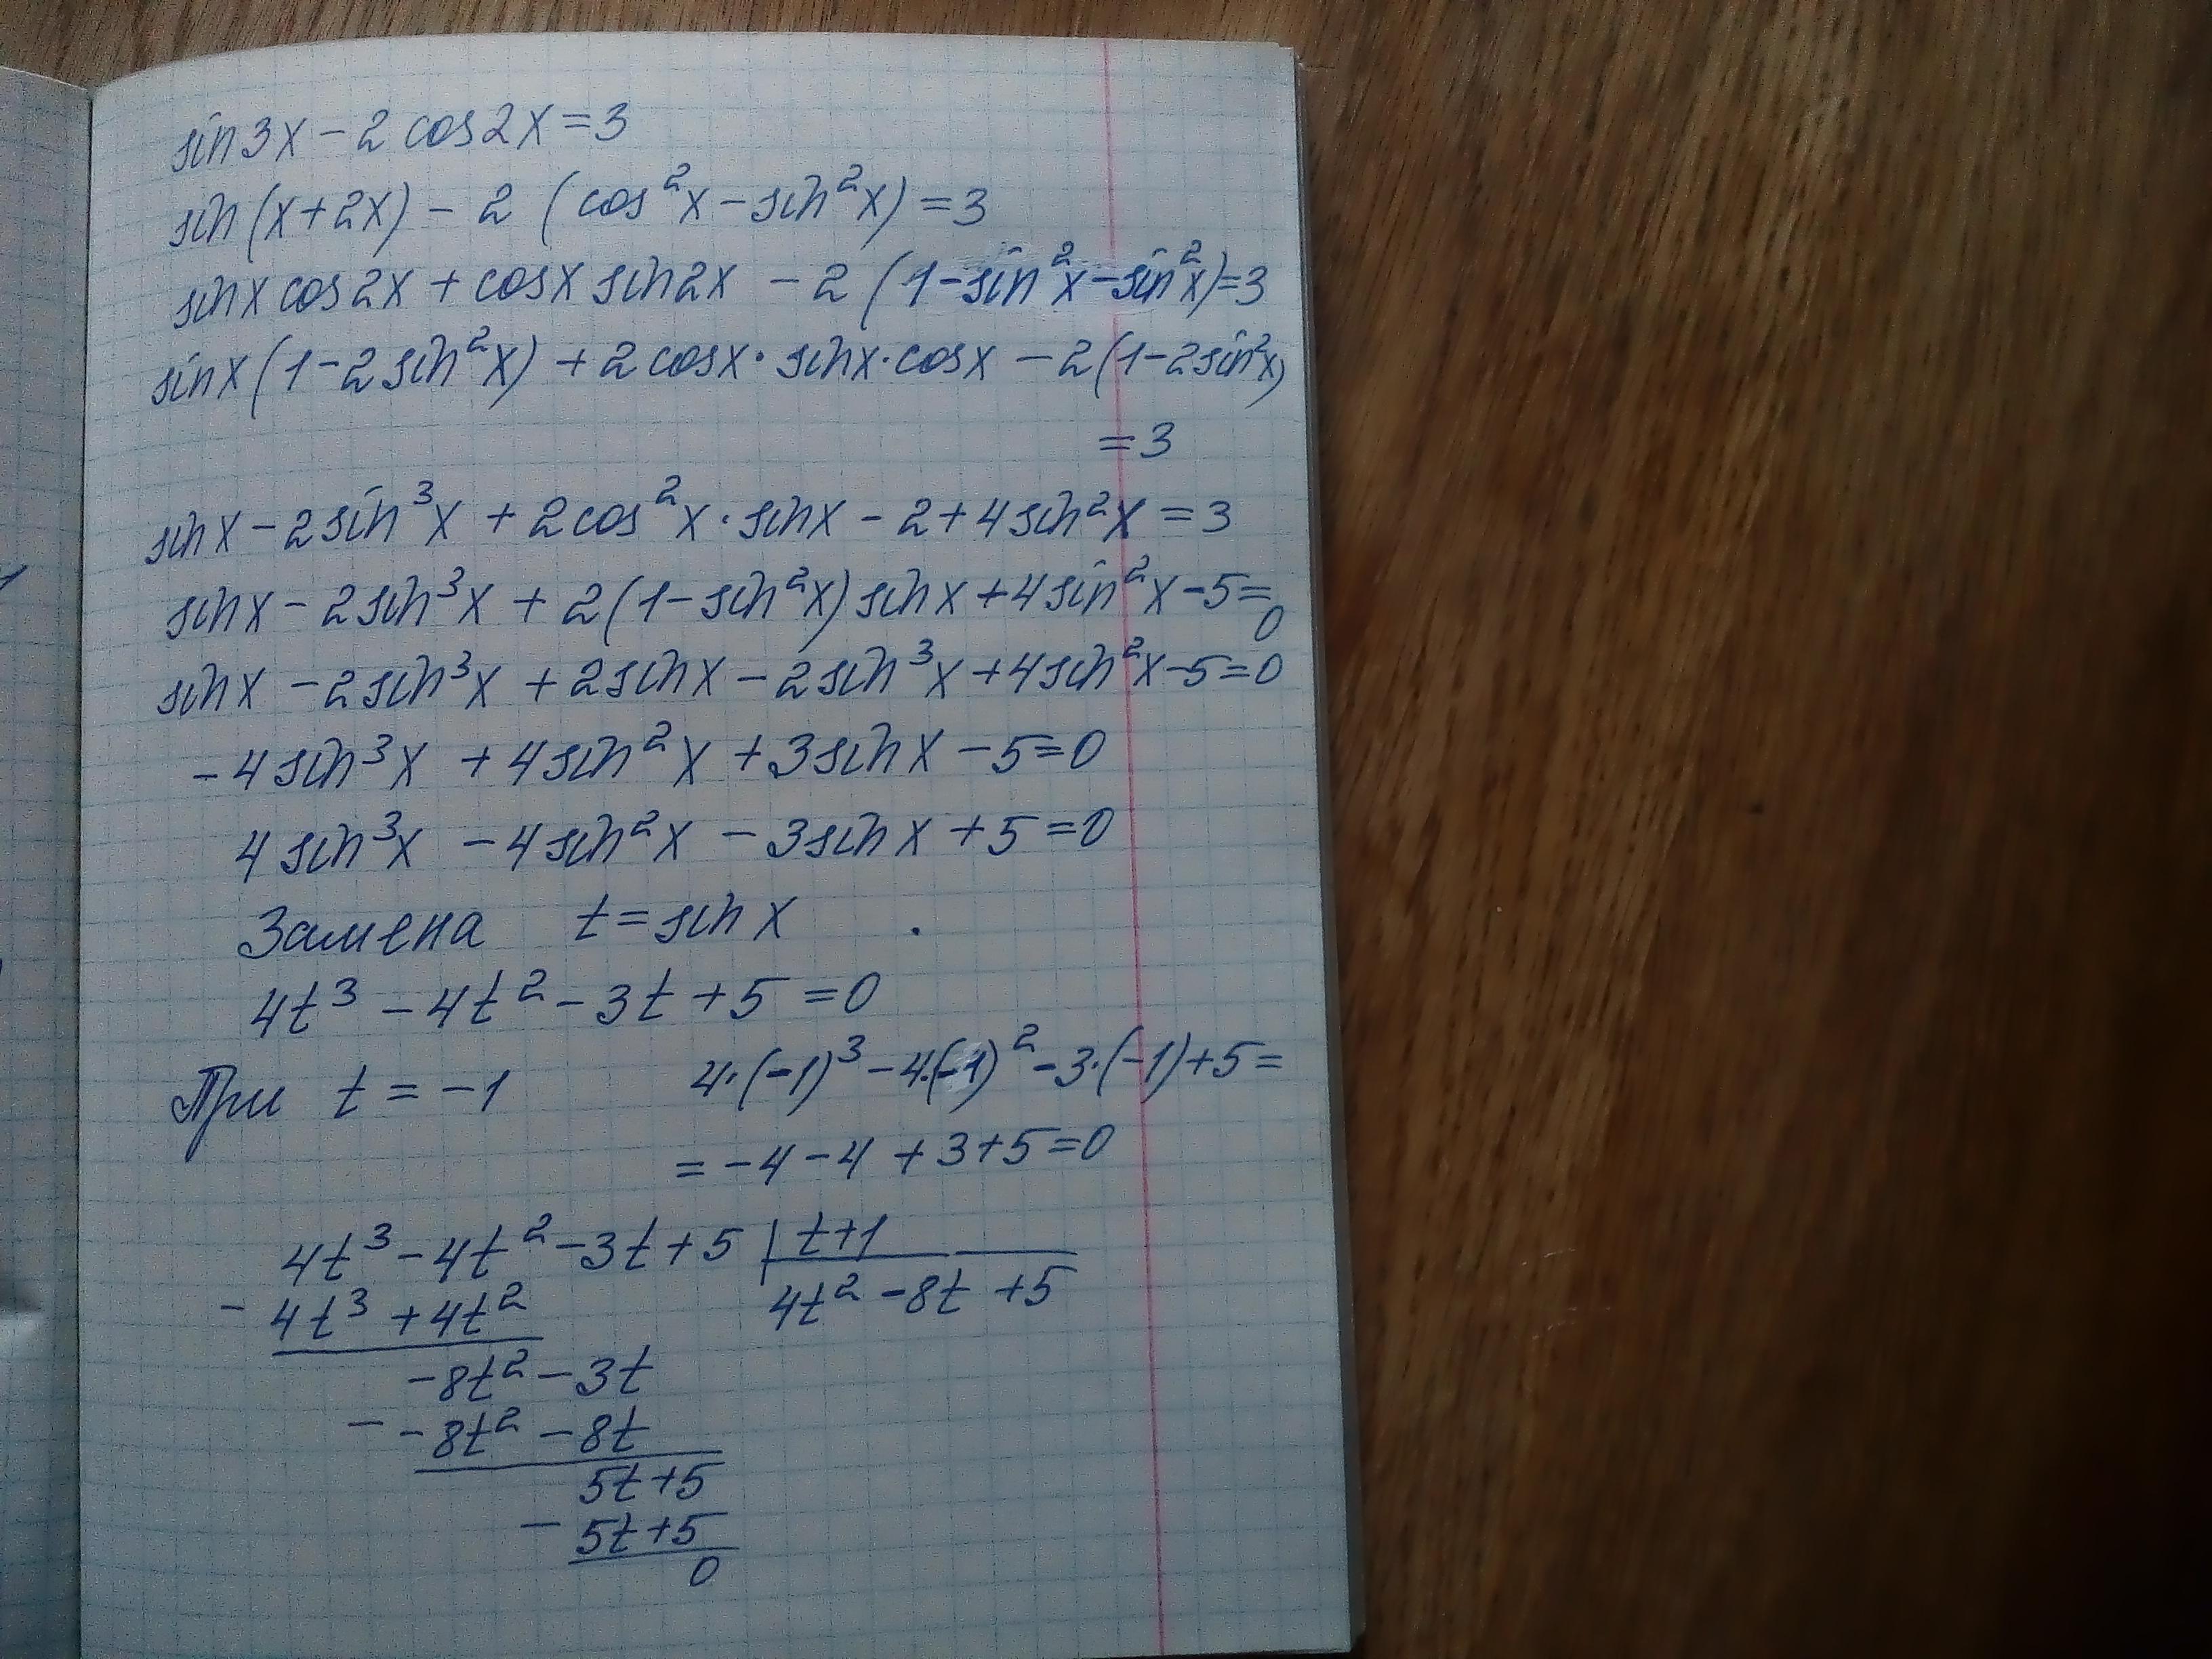 sin3x - 2cos2x = 3
sin(x+2x) - 2(cos²x - sin²x) = 3
sinx cos2x + cosx sin2x - 2(1 - sin²x - sin²x) = 3
sinx(1 - 2sin²x) + 2cosx · sinx · cosx - 2(1 - 2sin²x)
= 3
sinx - 2sin³x + 2cos²x · sinx - 2 + 4sin²x = 3
sinx - 2sin³x + 2(1 - sin²x)sinx + 4sin²x - 5 =
0
sinx - 2sin³x + 2sinx - 2sin³x + 4sin²x - 5 = 0
-4sin³x + 4sin²x + 3sinx - 5 = 0
4sin³x - 4sin²x - 3sinx + 5 = 0
Замена t = sinx
4t³ - 4t² - 3t + 5 = 0
При t = -1 4·(-1)³ - 4·(-1)² - 3·(-1) + 5 =
= -4 - 4 + 3 + 5 = 0
4t³ - 4t² - 3t + 5 | t+1
- 4t³ + 4t² 4t² - 8t + 5
-8t² - 3t
- -8t² - 8t
5t + 5
- 5t + 5
0